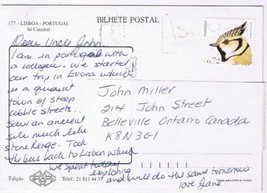 177 - LISBOA - PORTUGAL
Sé Catedral
BILHETE POSTAL
Dear Uncle John,
I am in portugal with
a collegue. We started
our trip in Evora which
is a quaint
town of steep
cobble streets.
Saw an ancient
site much like
stone henge. Took
the bus back to Lisbon which
we spent today
exploring
and will do the same tomorrow
love Jane
John Miller
214 John Street
Belleville Ontario Canada
K8N3G1
Edição
Telef.: 21 813 44 37